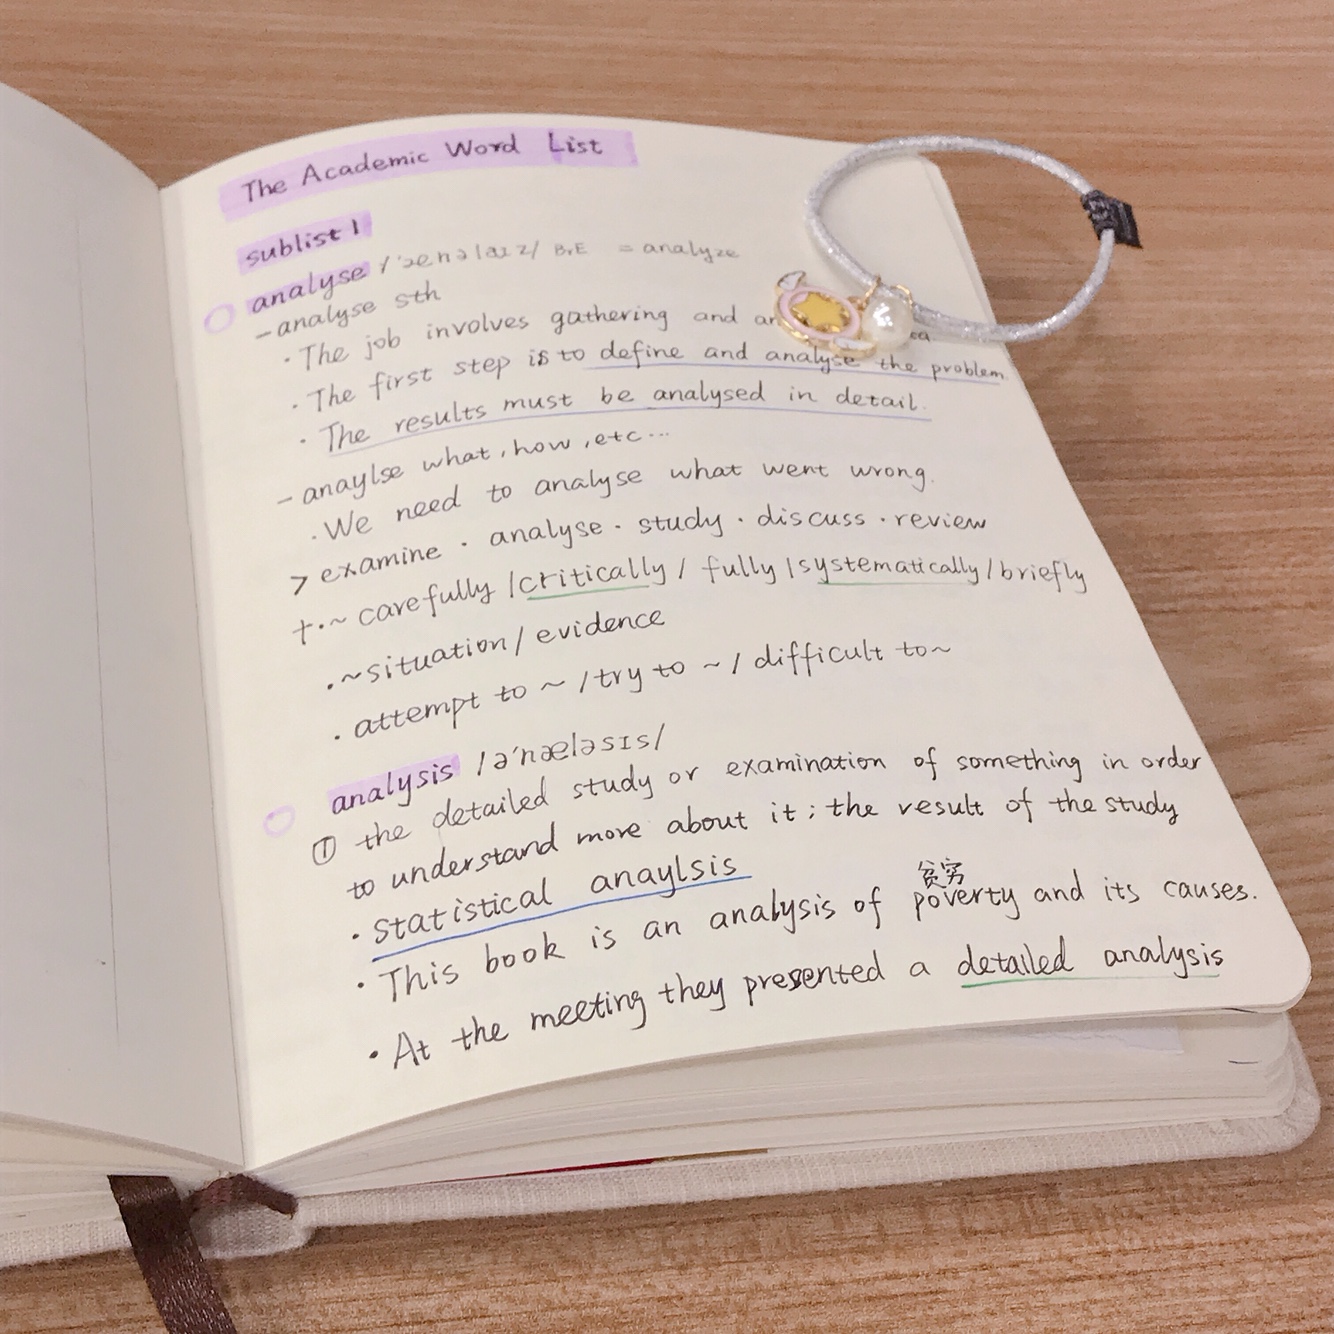 The Academic Word List
sublist 1
analyse /'ænəlaɪz/ BrE = analyze
- analyse sth
· The job involves gathering and
· The first step is to define and analyse the problem
· The results must be analysed in detail.
- anaylse what, how, etc...
· We need to analyse what went wrong.
> examine · analyse · study · discuss · review
+ · ~ carefully / critically / fully / systematically / briefly
· ~ situation / evidence
· attempt to ~ / try to ~ / difficult to ~
analysis /ə'næləsɪs/
① the detailed study or examination of something in order
to understand more about it; the result of the study
· statistical anaylsis
贫穷
· This book is an analysis of poverty and its causes.
· At the meeting they presented a detailed analysis